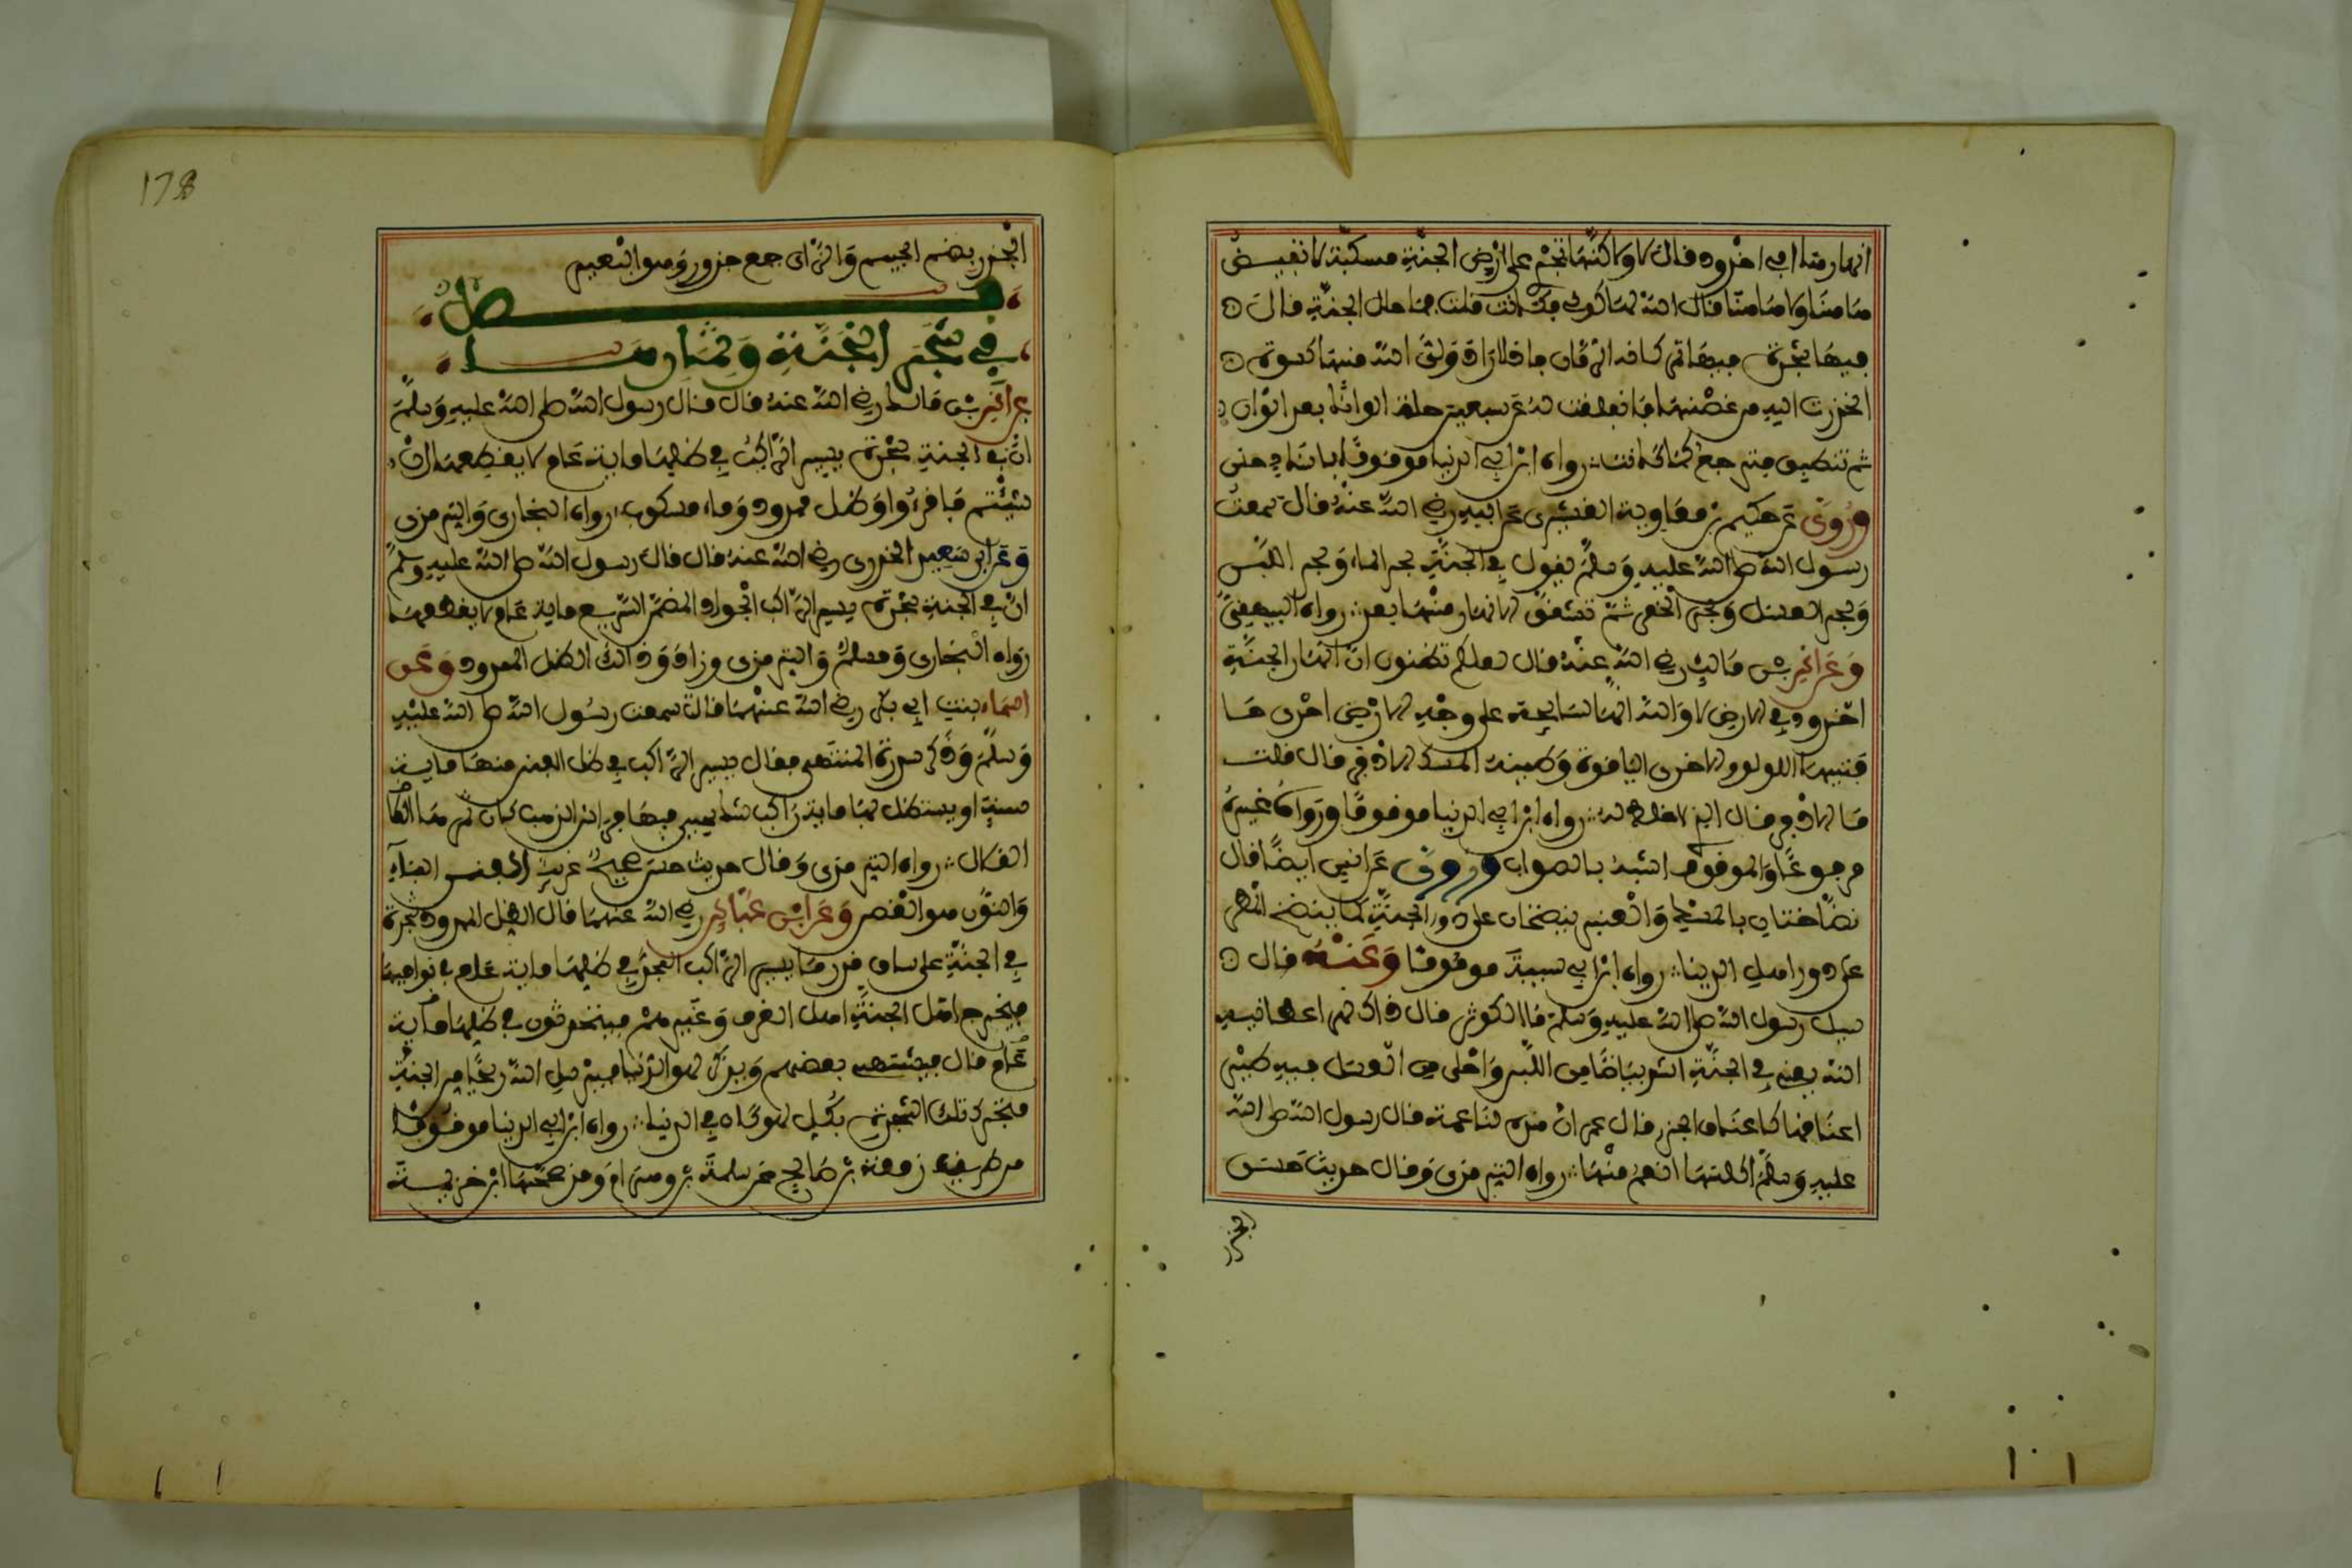 انهارها افي اخدود قال لا ولاكنها تجري على ارض الجنة مسكبة لا تفيض
هاهنا ولا هاهنا قال الله لها كوني فكانت قلت فما حلل الجنة قال
فيها شجرة فيها ثمر كانه الرمان فاذا اراد ولي الله منها كسوة
انحدرت اليه من غصنها فانفلقت له عن سبعين حلة الوانا بعد الوان
ثم تنطبق فترجع كما كانت رواه ابن ابي الدنيا موقوفا باسناد حسن
وروي عن حكيم بن معاوية القشيري عن ابيه رضي الله عنه قال سمعت
رسول الله صلى الله عليه وسلم يقول في الجنة بحر الماء وبحر اللبن
وبحر العسل وبحر الخمر ثم تشقق الانهار منها بعد رواه البيهقي
وعن انس بن مالك رضي الله عنه قال لعلكم تظنون ان انهار الجنة
اخدود في الارض لا والله انها لسايحة على وجه الارض احدى حا
فتيها اللولو والاخرى الياقوة وطينه المسك الاذفر قال قلت
ما الاذفر قال الذي لا خلط له رواه ابن ابي الدنيا موقوفا ورواه غيره
مرفوعا والموقوف اشبه بالصواب وروي عن انس ايضا قال
نضاختان بالمسك والعنبر ينضخان على دور الجنة كما ينضخ المطر
على دور اهل الدنيا رواه ابن ابي شيبة موقوفا وعنه قال
سيل رسول الله صلى الله عليه وسلم ما الكوثر قال ذاك نهر اعطانيه
الله يعني في الجنة اشد بياضا من اللبن واحلى من العسل فيه طير
اعناقها كاعناق الجزر قال عمر ان هذه لناعمة قال رسول الله صلى الله
عليه وسلم اكلتها انعم منها رواه الترمذي وقال حديث حسن
الجزر
178
الجزر بضم الجيم والزاي جمع جزور وهو البعير
فصل
في شجر الجنة وثمارها
عن انس بن مالك رضي الله عنه قال قال رسول الله صلى الله عليه وسلم
ان في الجنة شجرة يسير الراكب في ظلها ماية عام لا يقطعها ان
شيتم فاقرءوا وظل ممدود وماء مسكوب رواه البخاري والترمذي
وعن ابي سعيد الخدري رضي الله عنه قال قال رسول الله صلى الله عليه وسلم
ان في الجنة شجرة يسير الراكب الجواد المضمر السريع ماية عام لا يقطعها
رواه البخاري ومسلم والترمذي وزاد وذالك الظل الممدود وعن
اسماء بنت ابي بكر رضي الله عنهما قالت سمعت رسول الله صلى الله عليه
وسلم وذكر سدرة المنتهى فقال يسير الراكب في ظل الفنن منها ماية
سنة او يستظل بها ماية راكب شك يحيى فيها فراش الذهب كان ثمرها
القلال رواه الترمذي وقال حديث حسن صحيح غريب الفنن بفتح الفاء
والنون هو الغصن وعن ابن عباس رضي الله عنهما قال الظل الممدود شجرة
في الجنة على ساق قدر ما يسير الراكب المجد في ظلها ماية عام في نواحيها
فيخرج اهل الجنة اهل الغرف وغيرهم فيتحدثون في ظلها ماية
عام قال فيشتهي بعضهم ويذكر لهو الدنيا فيرسل الله ريحا من الجنة
فتحرك تلك الشجرة بكل لهو كان في الدنيا رواه ابن ابي الدنيا موقوفا
من طريق زمعة بن صالح عن سلمة بن وهرام وقد صححها ابن خزيمة